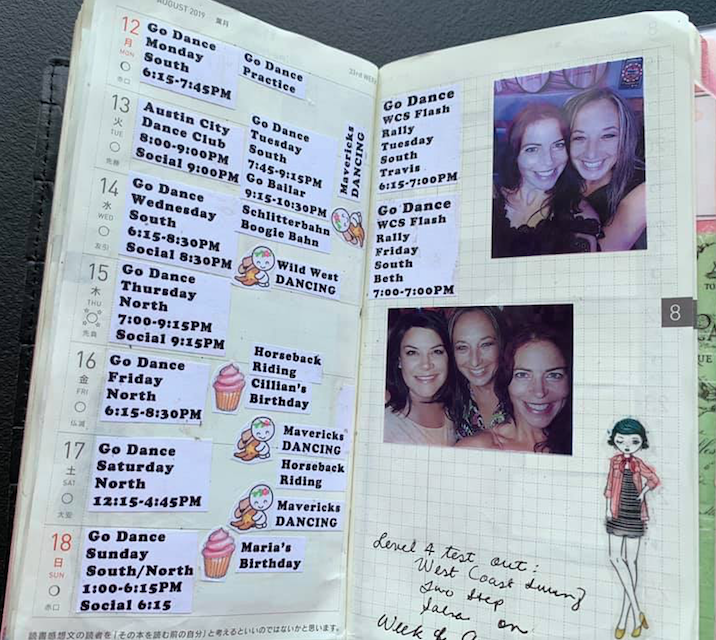 AUGUST 2019 葉月
33rd WEEK
12
月
MON
赤口
Go Dance
Monday
South
6:15-7:45PM
Go Dance
Practice
13
火
TUE
先勝
Austin City
Dance Club
8:00-9:00PM
Social 9:00PM
Go Dance
Tuesday
South
7:45-9:15PM
Go Bailar
9:15-10:30PM
Mavericks
DANCING
14
水
WED
友引
Go Dance
Wednesday
South
6:15-8:30PM
Social 8:30PM
Schlitterbahn
Boogie Bahn
Wild West
DANCING
15
木
THU
先負
Go Dance
Thursday
North
7:00-9:15PM
Social 9:15PM
16
金
FRI
仏滅
Go Dance
Friday
North
6:15-8:30PM
Horseback
Riding
Cillian's
Birthday
Mavericks
DANCING
17
土
SAT
大安
Go Dance
Saturday
North
12:15-4:45PM
Horseback
Riding
Mavericks
DANCING
18
日
SUN
赤口
Go Dance
Sunday
South/North
1:00-6:15PM
Social 6:15
Maria's
Birthday
読書感想文の読者を「その本を読む前の自分」と考えるといいのではないかと思います。
Go Dance
WCS Flash
Rally
Tuesday
South
Travis
6:15-7:00PM
Go Dance
WCS Flash
Rally
Friday
South
Beth
7:00-7:00PM
8
Level 4 test out:
West Coast Swing
Two Step
Salsa on
Week of